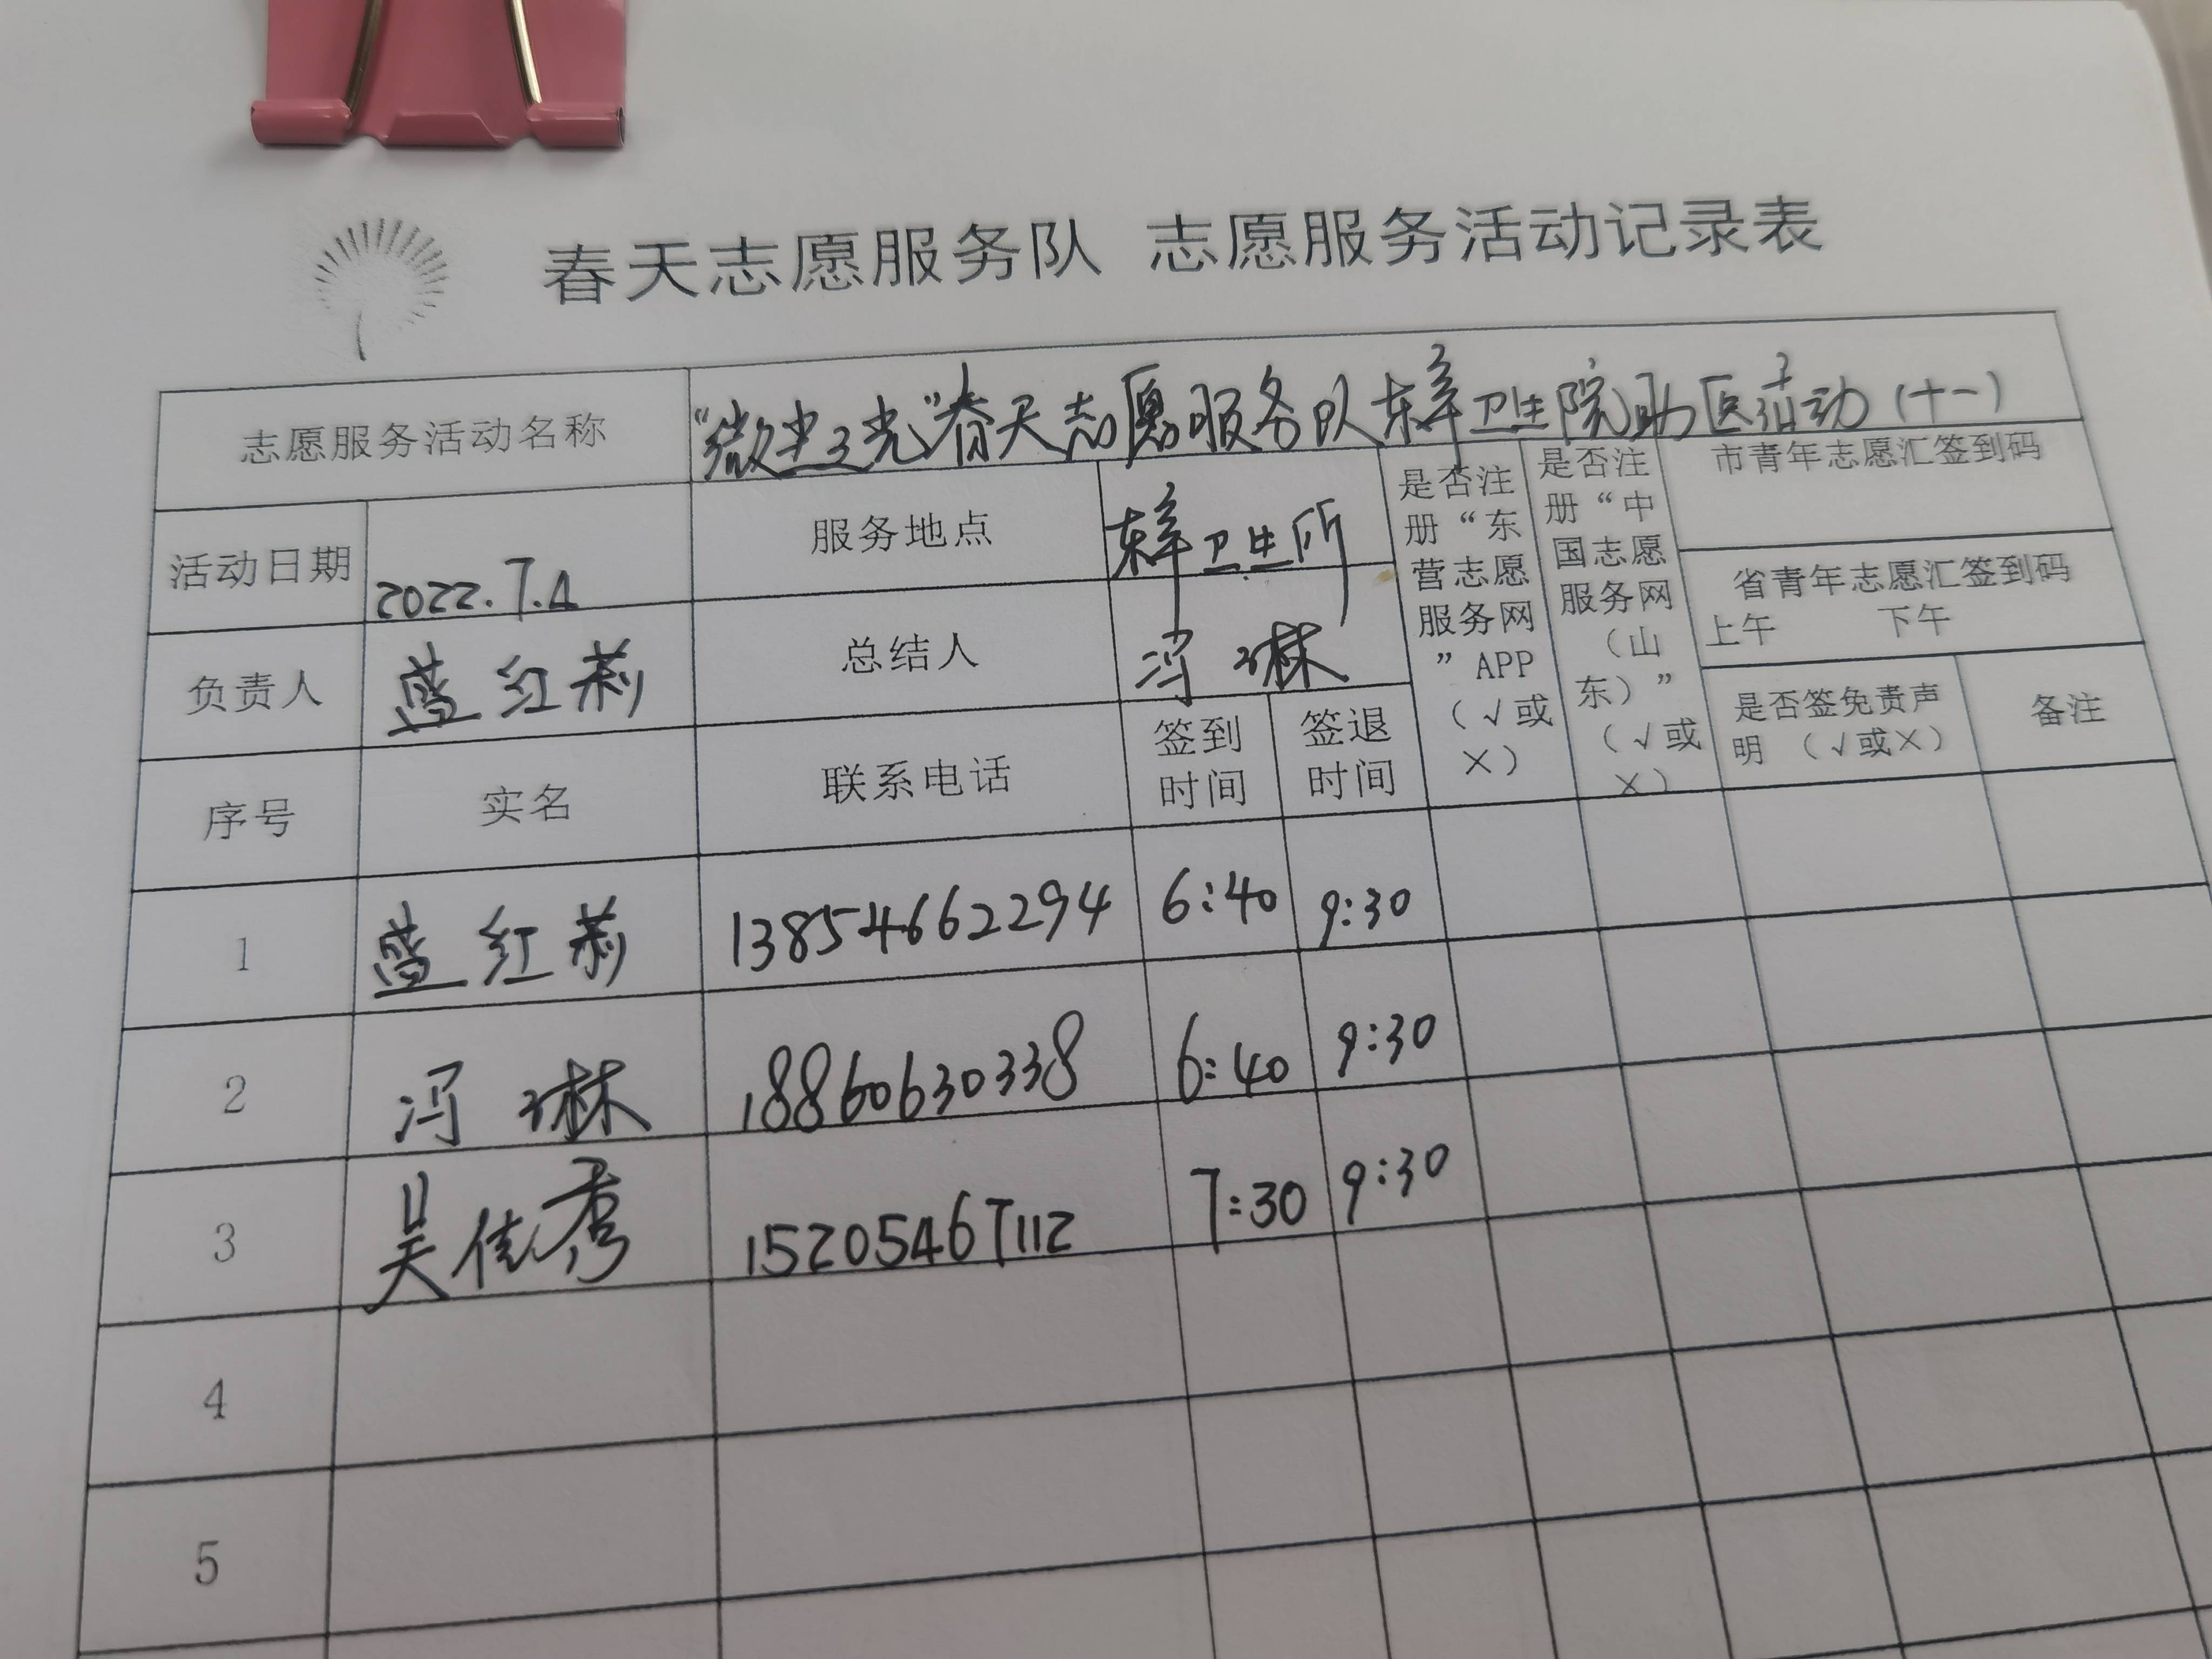 春天志愿服务队 志愿服务活动记录表
志愿服务活动名称 "微尘之光"春天志愿服务队东辛卫生院助医活动(十一)
活动日期 2022.7.4 服务地点 东辛卫生所
负责人 蓝红莉 总结人 冯琳
是否注册“东营志愿服务网”APP(√或×)
是否注册“中国志愿服务网(山东)”(√或×)
市青年志愿汇签到码
省青年志愿汇签到码
上午 下午
序号 实名 联系电话 签到时间 签退时间 是否签免责声明 (√或×) 备注
1 蓝红莉 13854662294 6:40 9:30
2 冯琳 18860630338 6:40 9:30
3 吴佳秀 15205467112 7:30 9:30
4
5